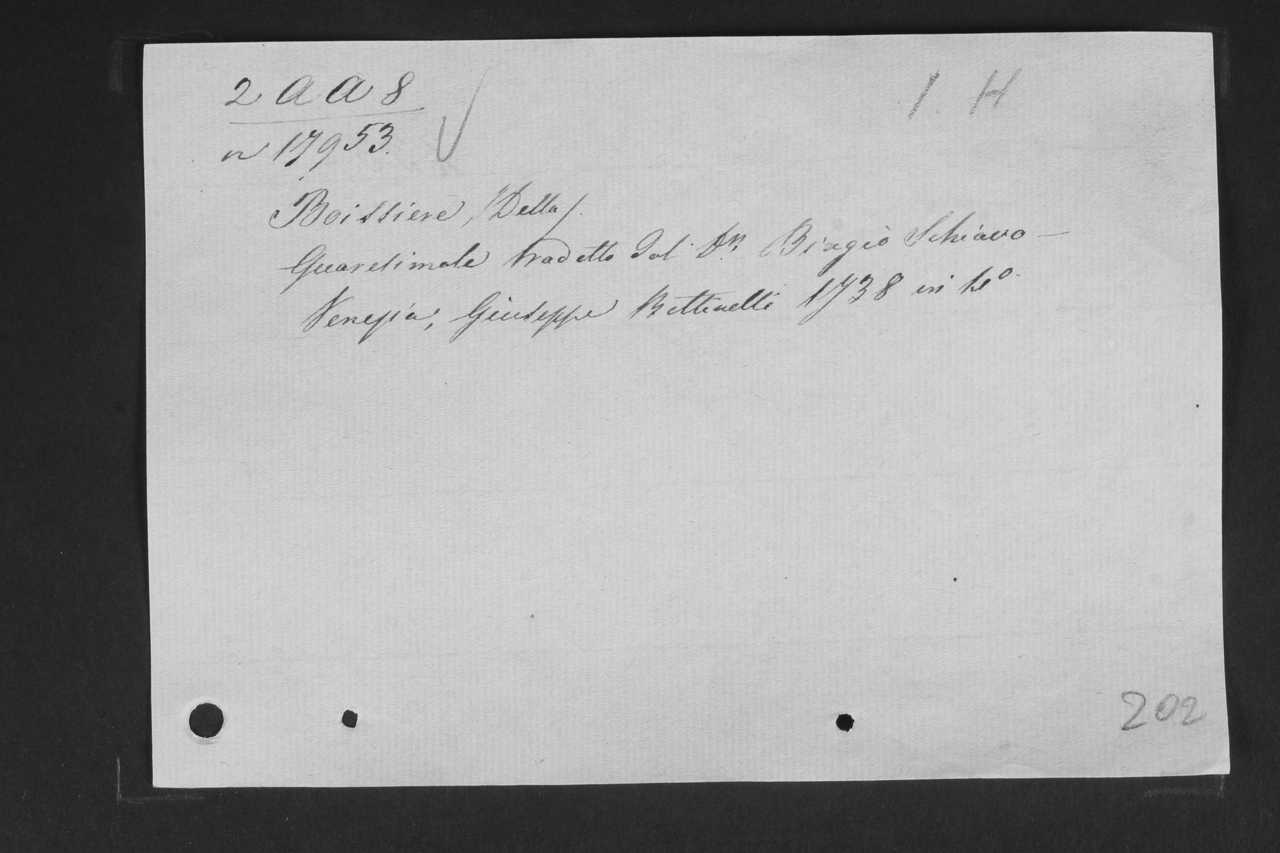 2 a a 8
1 H
n 17953.
Boissiere /Della/.
Quaresimale tradotto dal Dn. Biagio Schiavo —
Venezia, Giuseppe Bettinelli 1738 in 4o.
202